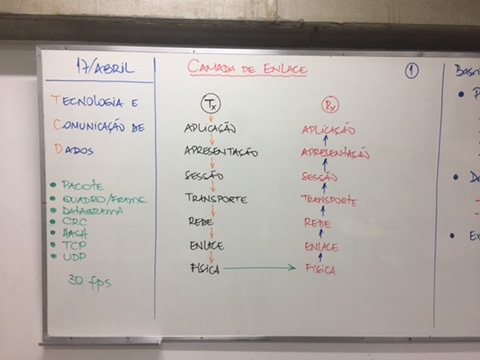 17/ABRIL
TECNOLOGIA E
COMUNICAÇÃO DE
DADOS
• PACOTE
• QUADRO/FRAME
• DATAGRAMA
• CRC
• HASH
• TCP
• UDP
30 fps
CAMADA DE ENLACE
1
Tx
APLICAÇÃO
APRESENTAÇÃO
SESSÃO
TRANSPORTE
REDE
ENLACE
FÍSICA
Rx
APLICAÇÃO
APRESENTAÇÃO
SESSÃO
TRANSPORTE
REDE
ENLACE
FÍSICA